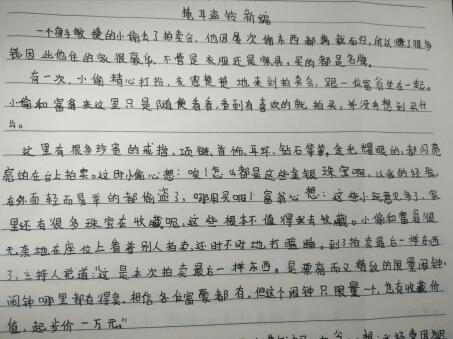 掩耳盗铃新编
一个身手敏捷的小偷去了拍卖会，他因屡次偷东西都满载而归，所以赚了很多
钱，因此他住的家很豪华，不管是衣服还是家具，买的都是名牌。
有一次，小偷精心打扮，来得楚楚地来到拍卖会，跟一位富翁坐在一起。
小偷和富翁来这里只是随便看看，看到有喜欢的就拍买，并没有想到买什
么。
这里有很多珍贵的戒指、项链、首饰、耳环、钻石等等，金光耀眼的，都闪亮
亮的在台上拍卖。这时小偷心想：唉！怎么都是这些金银珠宝啊，以我的经验，
在外面轻而易举的都偷盗了，哪用买啊！富翁心想：这些小玩意见多了，家
里还有很多珠宝在收藏呢，这些根本不值得我去收藏。小偷和富翁很
无奈地在座位上看着别人拍卖，还时不时地打瞌睡。到了拍卖最后一样东西
了，主持人说道：“这是本次拍卖最后一样东西。是票高而又精致的限量闹钟，
闹钟哪里都有得卖，相信各位富豪都有，但这个闹钟只限量一个，也有收藏价
值，起步价一万元。”